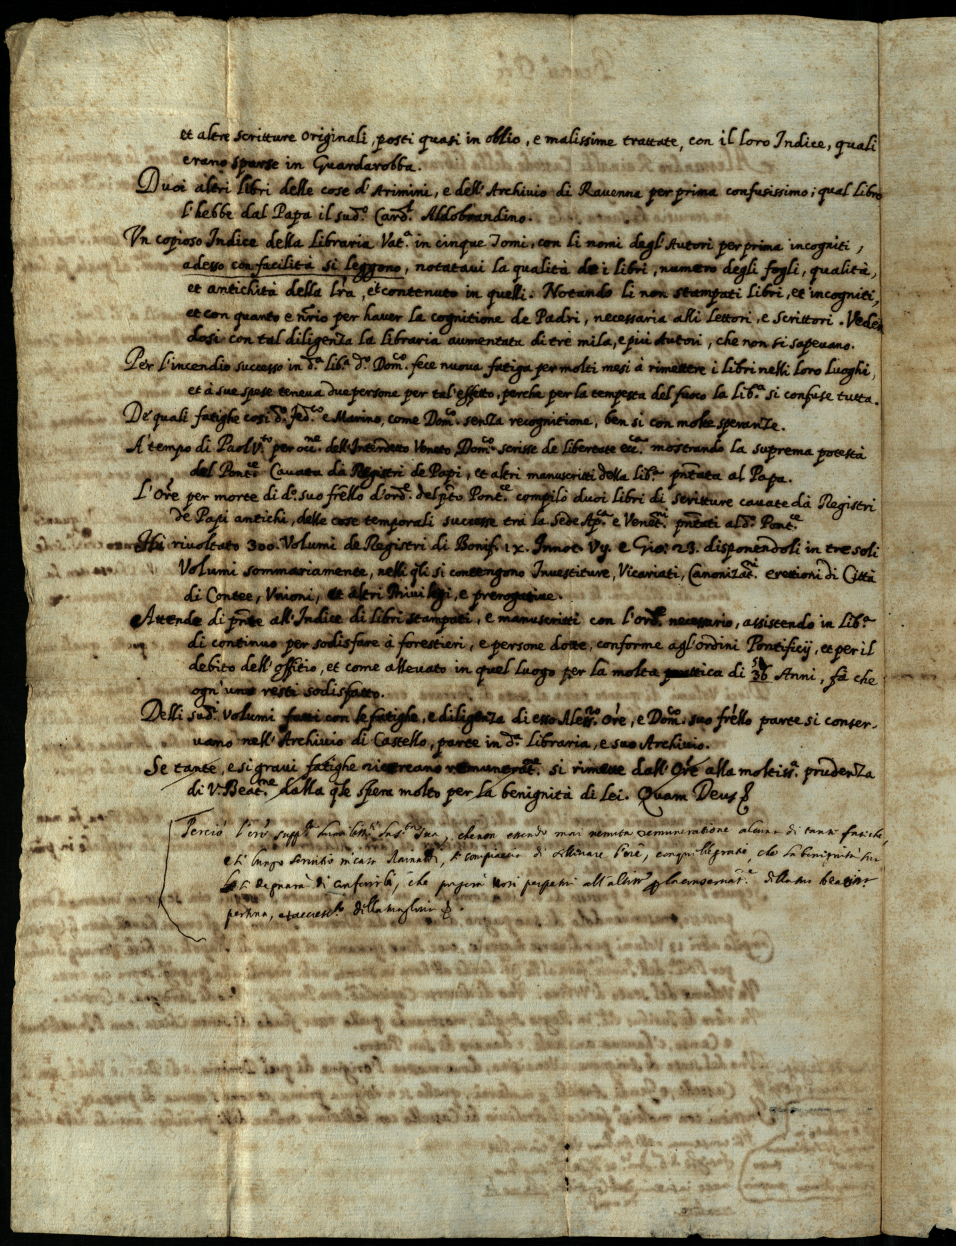 et altre scritture originali, posti quasi in oblio, e malissime trattate, con il loro Indice, quali
erano sparse in Guardarobba.
Duoi altri libri delle cose d'Arimini, e dell'Archivio di Ravenna per prima confusissimo; qual libro
l'hebbe dal Papa il sud.º Card.l Aldobrandino.
Un copioso Indice della Libraria Vat.ª in cinque Tomi, con li nomi degl'Autori per prima incogniti,
adesso con facilità si leggono, notatavi la qualità de i libri, numero degli fogli, qualità,
et antichità della lr̃a, et contenuto in quelli. Notando li non stampati libri, et incogniti,
et con quanto e nr̃io per haver la cognitione de Padri, necessaria alli Lettori, e Scrittori. Veden
dosi con tal diligenza la Libraria aumentata di tre mila, e più Autori, che non si sapevano.
Per l'incendio successo in d.ª Lib.ª d.º Dom.co fece nuova fatiga per molti mesi à rimettere i libri nelli loro Luoghi,
et à sue spese teneva due persone per tal'effetto, perche per la tempesta del fuoco la Lib.ª si confuse tutta.
De quali fatighe cosi d.º Fed.co e Marino, come Dom.co senza recognitione, ben si con molte speranze.
A tempo di Paolo V.to per occ.ne dell'Interdetto Veneto Dom.co scrisse de libertate ec.ca mostrando la suprema potestà
del Pont.ce Cavata da Registri de Papi, et altri manuscritti della Lib.ª pñtata al Papa.
L'Ore per morte di d.º suo fr̃ello d'ord.e del pto Pont.ce compilò duoi libri di Scritture cavate dà Registri
de Papi antichi, delle cose temporali successe trà la Sede Ap.ca e Venet.ni pñtati al d.º Pont.ce
Hà rivoltato 300. Volumi de Registri di Bonif. ix. Innoc. Vij. e Gio: 23. disponendoli in tre soli
Volumi sommariamente, nelli q̃li si contengono Investiture, Vicariati, Canonizat.ni erettioni di Città
di Contee, Unioni, et altri Privilegi, e prerogative.
Attende di pñte all'Indice di libri stampati, e manuscritti con l'ord.e necessario, assistendo in Lib.ª
di continuo per sodisfare à forestieri, e persone dotte, conforme agl'ordini Pontificij, et per il
debito dell'offitio, et come allevato in quel luogo per la molta prattica di 36 Anni, fà che
ogn'uno resti sodisfatto.
Delli sud.i Volumi fatti con le fatighe, e diligenza di esso Aless.ro Ore, e Dom.co suo fr̃ello parte si conser-
vano nell'Archivio di Castello, parte in d.ª Libraria, e suo Archivio.
Se tante, e si gravi fatighe ricercano remunerat.e si rimette dall'Ore alla moltiss.ª prudenza
di V. Beat.ne dalla q̃le spera molto per la benignità di Lei. Quam Deus &
Perciò supp.ca che non essendo mai venuta remuneratione alcuna di tante fatiche,
e di lungo servitio in casa Rainaldi, si compiaccia di che la benignità sua
si degnarà di conferirli, che pregarà